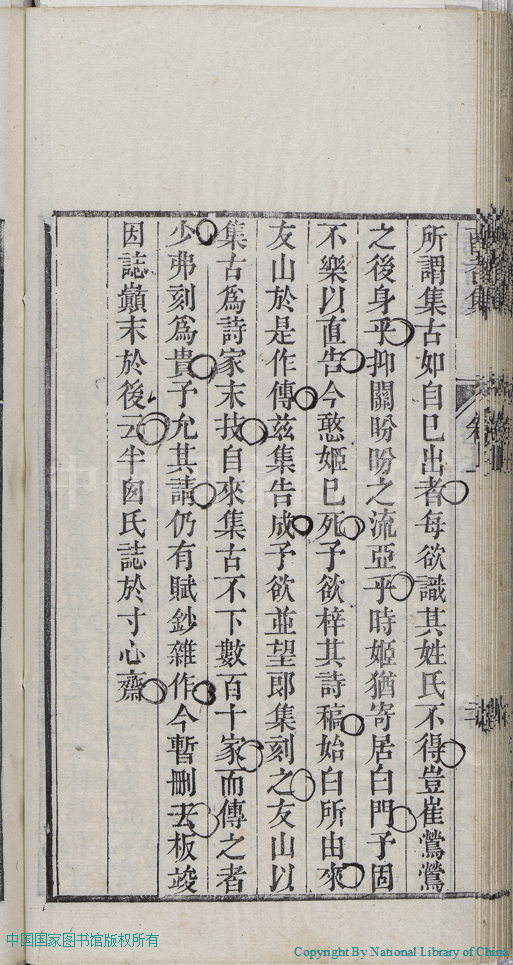 所謂集古如自已出者每欲識其姓氏不得豈崔鶯鶯
之後身乎抑關盼盼之流亞乎時姬猶寄居白門予固
不樂以直告今憨姬已死予欲梓其詩稿始白所由來
友山於是作傳茲集告成予欲並望郎集刻之友山以
集古爲詩家末技自來集古不下數百十家而傳之者
少弗刻爲貴予允其請仍有賦鈔雜作今暫刪去板竣
因誌巔末於後云半囱氏誌於寸心齋
中国国家图书馆版权所有
Copyright By National Library of China